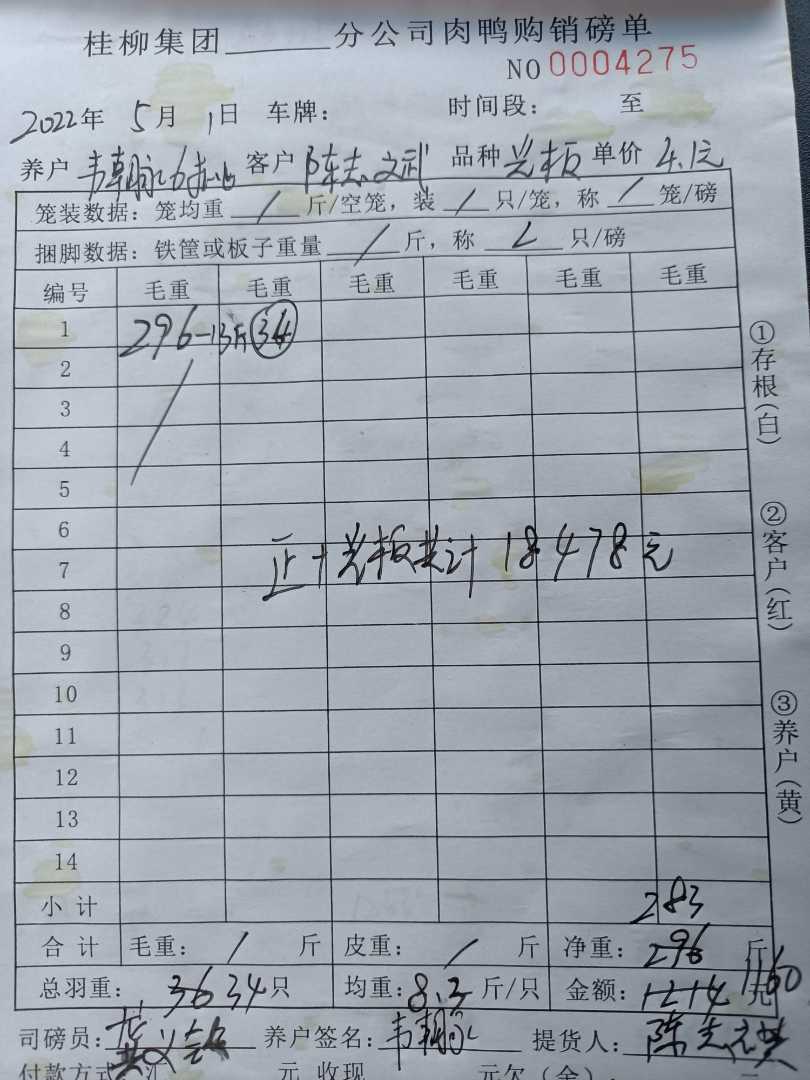 桂柳集团______分公司肉鸭购销磅单
NO 0004275
2022年 5月 1日 车牌： 时间段： 至
养户 韦朝 客户 陈志 武 品种 光板 单价 4.1元
笼装数据：笼均重 / 斤/空笼，装 / 只/笼，称 / 笼/磅
捆脚数据：铁筐或板子重量 / 斤，称 只/磅
编号 毛重 毛重 毛重 毛重 毛重 毛重
1 296-13斤
2
3
4
5
6
正+光板共计 18478元
7
8
9
10
11
12
13
14
小计 283
合计 毛重： / 斤 皮重： / 斤 净重：296 斤
总羽重：34只 均重：8.3斤/只 金额：1214 元 1160
司磅员： 养户签名：韦朝 提货人：陈志
付款方式 汇 元 收现 元欠（余）：
①存根（白）
②客户（红）
③养户（黄）